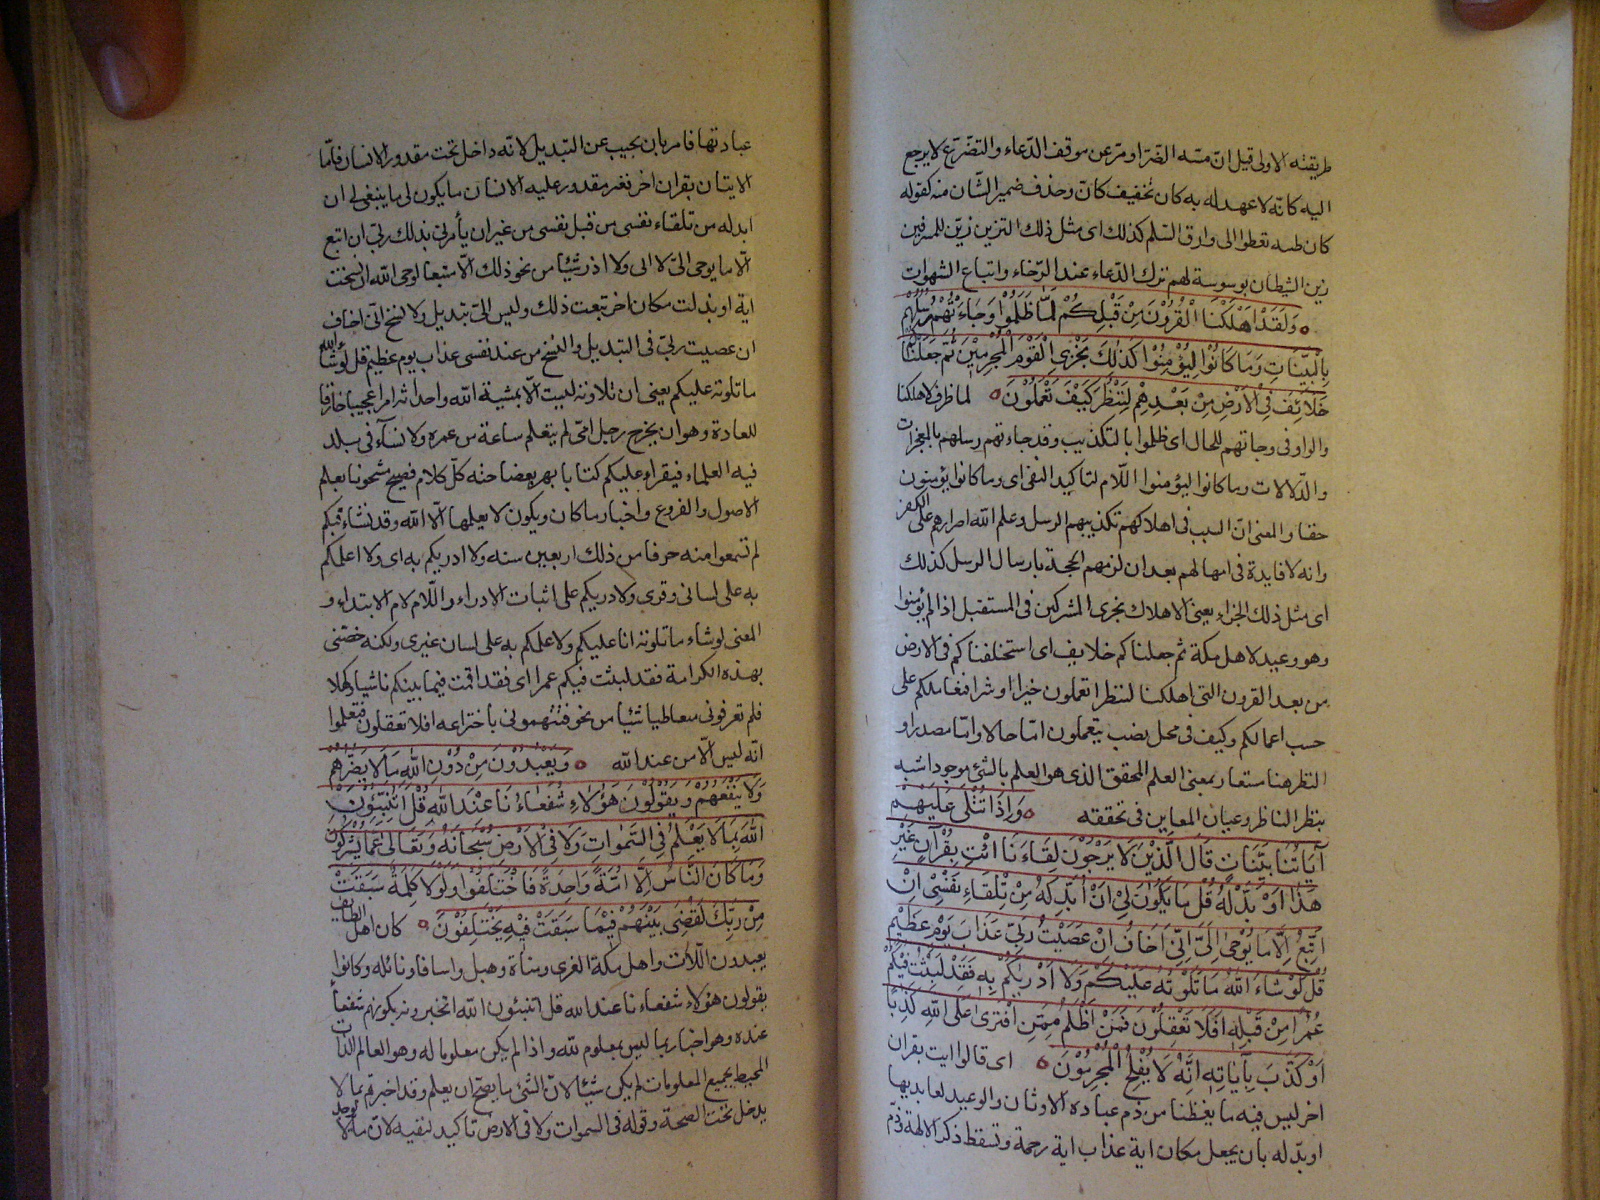 طريقته الاولى قبل ان مسه الضر او مر عن موقف الدعاء والتضرع لا يرجع
اليه كانه لا عهد له به كان تخفيف كان وحذف ضمير الشان منه كقوله
كان ظبية تعطو الى وارق السلم كذلك اى مثل ذلك التزين زين للمسرفين
زين الشيطان بوسوسة لهم ترك الدعاء عند الرخاء واتباع الشهوات
وَلَقَدْ اَهْلَكْنَا الْقُرُوْنَ مِنْ قَبْلِكُمْ لَمَّا ظَلَمُوْا وَجَاءَتْهُمْ رُسُلُهُمْ
بِالْبَيِّنَاتِ وَمَا كَانُوا لِيُؤْمِنُوْا كَذٰلِكَ نَجْزِى الْقَوْمَ الْمُجْرِمِيْنَ ثُمَّ جَعَلْنَاكُمْ
خَلَائِفَ فِى الْاَرْضِ مِنْ بَعْدِهِمْ لِنَنْظُرَ كَيْفَ تَعْمَلُوْنَ لما ظرف لاهلكنا
والواو فى وجاتهم للحال اى ظلموا بالتكذيب وقد جاءتهم رسلهم بالمعجزات
والدلالات وما كانوا ليؤمنوا اللام لتاكيد النفى اى وما كانوا يؤمنون
حقا والمعنى ان السبب فى اهلاكهم تكذيبهم الرسل وعلم الله اصرارهم على الكفر
وانه لا فايدة فى امهالهم بعد ان لزمهم الحجة بارسال الرسل كذلك
اى مثل ذلك الجزاء يعنى الاهلاك نجزى المشركين فى المستقبل اذا لم يؤمنوا
وهو وعيد لاهل مكة ثم جعلناكم خلايف اى استخلفناكم فى الارض
من بعد القرون التى اهلكنا لننظر اتعملون خيرا او شرا فنعاملكم على
حسب اعمالكم وكيف فى محل نصب بتعملون اما حالا واما مصدرا و
النظر هنا مستعار بمعنى العلم المحقق الذى هو العلم بالشئ موجودا شبه
بنظر الناظر وعيان المعاين فى تحققه وَاِذَا تُتْلٰى عَلَيْهِمْ
آيَاتُنَا بَيِّنَاتٍ قَالَ الَّذِيْنَ لَا يَرْجُوْنَ لِقَاءَنَا ائْتِ بِقُرْآنٍ غَيْرِ
هٰذَا اَوْ بَدِّلْهُ قُلْ مَا يَكُوْنُ لِىْ اَنْ اُبَدِّلَهُ مِنْ تِلْقَاءِ نَفْسِىْ اِنْ
اَتَّبِعُ اِلَّا مَا يُوْحٰى اِلَىَّ اِنِّى اَخَافُ اِنْ عَصَيْتُ رَبِّى عَذَابَ يَوْمٍ عَظِيْمٍ
قُلْ لَوْ شَاءَ اللّٰهُ مَا تَلَوْتُهُ عَلَيْكُمْ وَلَا اَدْرٰيكُمْ بِهِ فَقَدْ لَبِثْتُ فِيْكُمْ
عُمُرًا مِنْ قَبْلِهِ اَفَلَا تَعْقِلُوْنَ فَمَنْ اَظْلَمُ مِمَّنِ افْتَرٰى عَلَى اللّٰهِ كَذِبًا
اَوْ كَذَّبَ بِآيَاتِهِ اِنَّهُ لَا يُفْلِحُ الْمُجْرِمُوْنَ اى قالوا ايت بقران
اخر ليس فيه ما يغيظنا من ذم عبادة الاوثان والوعيد لعابديها
او بدله بان يجعل مكان اية عذاب اية رحمة وتسقط ذكر الالهة وذم
عبادتها فامر بان يجيب عن التبديل لانه داخل تحت مقدور الانسان فاما
الاتيان بقران اخر فغير مقدور عليه الانسان ما يكون لى ما ينبغى لى ان
ابدله من تلقاء نفسى من قبل نفسى من غير ان يأمرنى بذلك ربى ان اتبع
الا ما يوحى الى لا اتى ولا اذر شيئا من نحو ذلك الا متبعا لوحى الله ان نسخت
اية او بدلت مكان اخر تبعت ذلك وليس الى تبديل ولا نسخ انى اخاف
ان عصيت ربى فى التبديل والنسخ من عند نفسى عذاب يوم عظيم قل لو شاء الله
ما تلوته عليكم يعنى ان تلاوته ليست الا بمشية الله واحداثه امرا عجيبا خارقا
للعادة وهو ان يخرج رجل امى لم يتعلم ساعة من عمره ولا نشأ فى بلد
فيه العلماء فيقراء عليكم كتابا بهر بفصاحته كل كلام فصيح مشحونا بعلم
الاصول والفروع واخبار ما كان ويكون لا يعلمها الا الله وقد نشاء فيكم
لم تسمعوا منه حرفا من ذلك اربعين سنه ولا ادريكم به اى ولا اعلمكم
به على لسانى وقرى ولادريكم على اثبات الادراء واللام لام الابتداء و
المعنى لو شاء ما تلوته انا عليكم ولاعلمكم به على لسان غيرى ولكنه خصنى
بهذه الكرامة فقد لبثت فيكم عمرا اى فقد اقمت فيما بينكم ناشيا وكهلا
فلم تعرفونى متعاطيا شيئا من نحوه فتتهمونى باختراعه افلا تعقلون فتعلموا
انه ليس الا من عند الله وَيَعْبُدُوْنَ مِنْ دُوْنِ اللّٰهِ مَا لَا يَضُرُّهُمْ
وَلَا يَنْفَعُهُمْ وَيَقُوْلُوْنَ هٰؤُلَاءِ شُفَعَاءُنَا عِنْدَ اللّٰهِ قُلْ اَتُنَبِّئُوْنَ
اللّٰهَ بِمَا لَا يَعْلَمُ فِى السَّمٰوَاتِ وَلَا فِى الْاَرْضِ سُبْحَانَهُ وَتَعَالٰى عَمَّا يُشْرِكُوْنَ
وَمَا كَانَ النَّاسُ اِلَّا اُمَّةً وَاحِدَةً فَاخْتَلَفُوْا وَلَوْلَا كَلِمَةٌ سَبَقَتْ
مِنْ رَبِّكَ لَقُضِىَ بَيْنَهُمْ فِيْمَا سَبَقَتْ فِيْهِ يَخْتَلِفُوْنَ كان اهل الطايف
يعبدون اللات واهل مكة العزى ومناة وهبل واسافا ونائله وكانوا
يقولون هؤلاء شفعاءنا عند الله قل اتنبئون الله اتخبرونه بكونهم شفعاء
عنده وهو اخبار بما ليس بمعلوم لله واذا لم يكن معلوما له وهو العالم الذات
المحيط بجميع المعلومات لم يكن شيئا لان الشئ ما يصح ان يعلم وقد اخبرتم بما لا
يدخل تحت الصحة وقوله فى السموات ولا فى الارض تاكيد لنفيه لان ما لا يوجد